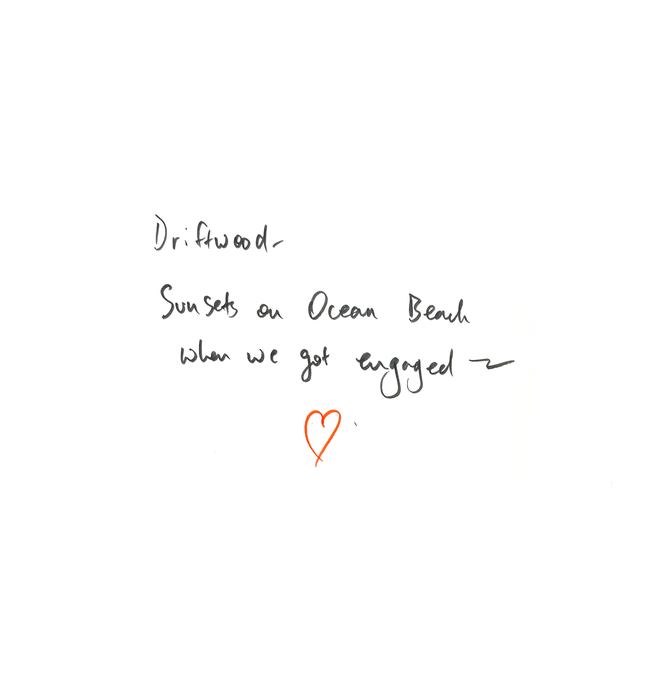 Driftwood-
Sunsets on Ocean Beach
when we got engaged ~